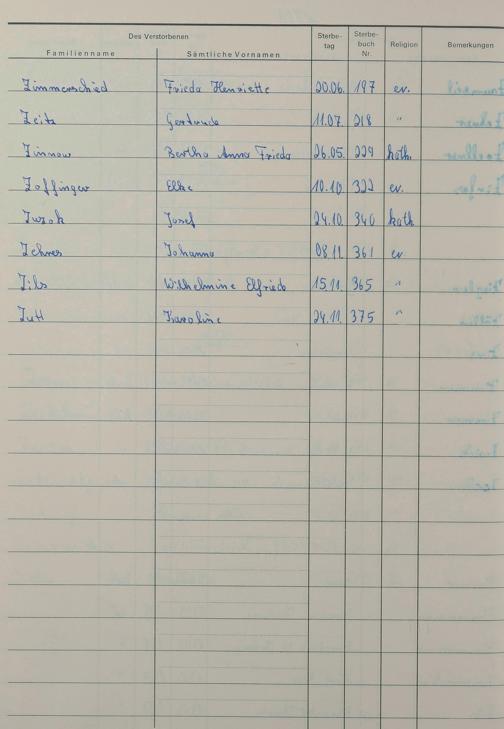 Des Verstorbenen Sterbe- tag Sterbe- buch Nr. Religion Bemerkungen
Familienname Sämtliche Vornamen
Zimmerschied Frieda Henriette 20.06. 197 ev.
Zeitz Gertrude 11.07. 218 "
Zinnow Bertha Anna Frieda 26.05. 229 kath.
Zoffinger Elke 10.10. 322 ev.
Zwzok Josef 24.10. 340 kath
Zehres Johanna 08.11. 361 ev
Zils Wilhelmine Elfriede 15.11. 365 "
Zutt Karoline 24.11. 375 "